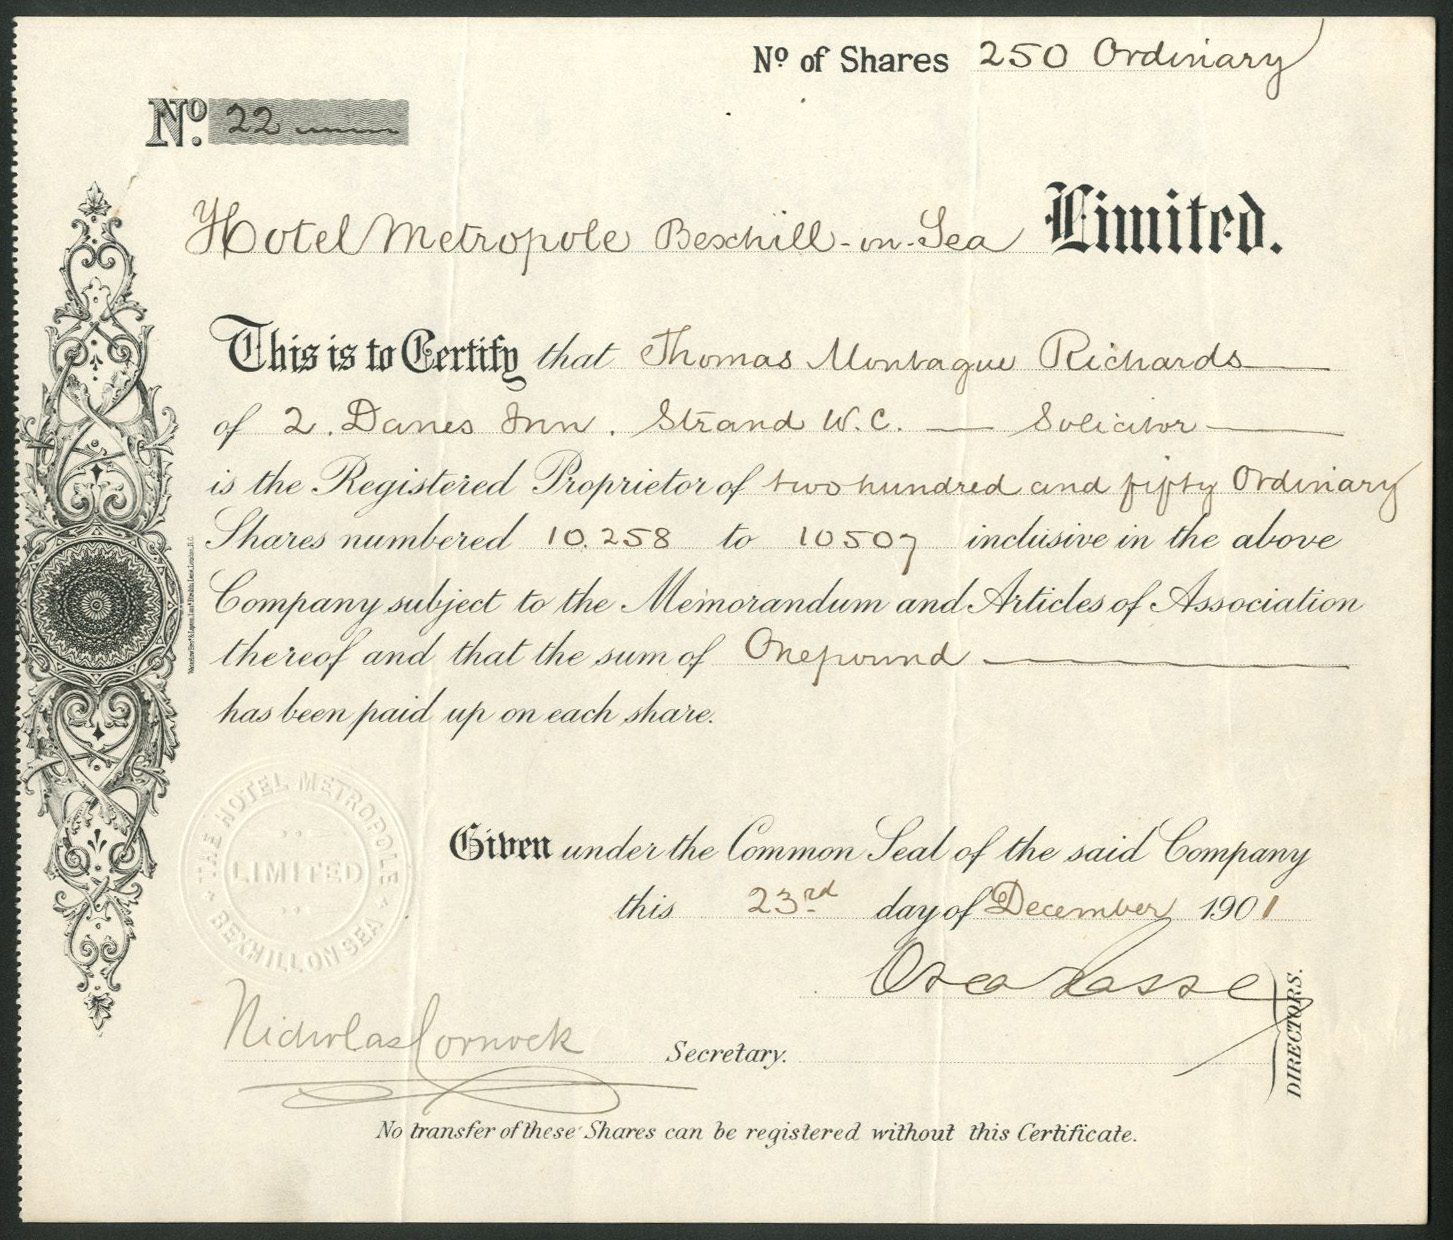 Nº of Shares 250 Ordinary
Nº. 22
Hotel Metropole Bexhill-on-Sea Limited.
This is to Certify that Thomas Montague Richards
of 2. Danes Inn. Strand W.C. — Solicitor
is the Registered Proprietor of two hundred and fifty Ordinary
Shares numbered 10.258 to 10507 inclusive in the above
Company subject to the Memorandum and Articles of Association
thereof and that the sum of One pound
has been paid up on each share.
THE HOTEL METROPOLE
LIMITED
BEXHILL ON SEA
Given under the Common Seal of the said Company
this 23rd day of December 1901
DIRECTORS.
Nicholas Cornock Secretary.
No transfer of these Shares can be registered without this Certificate.